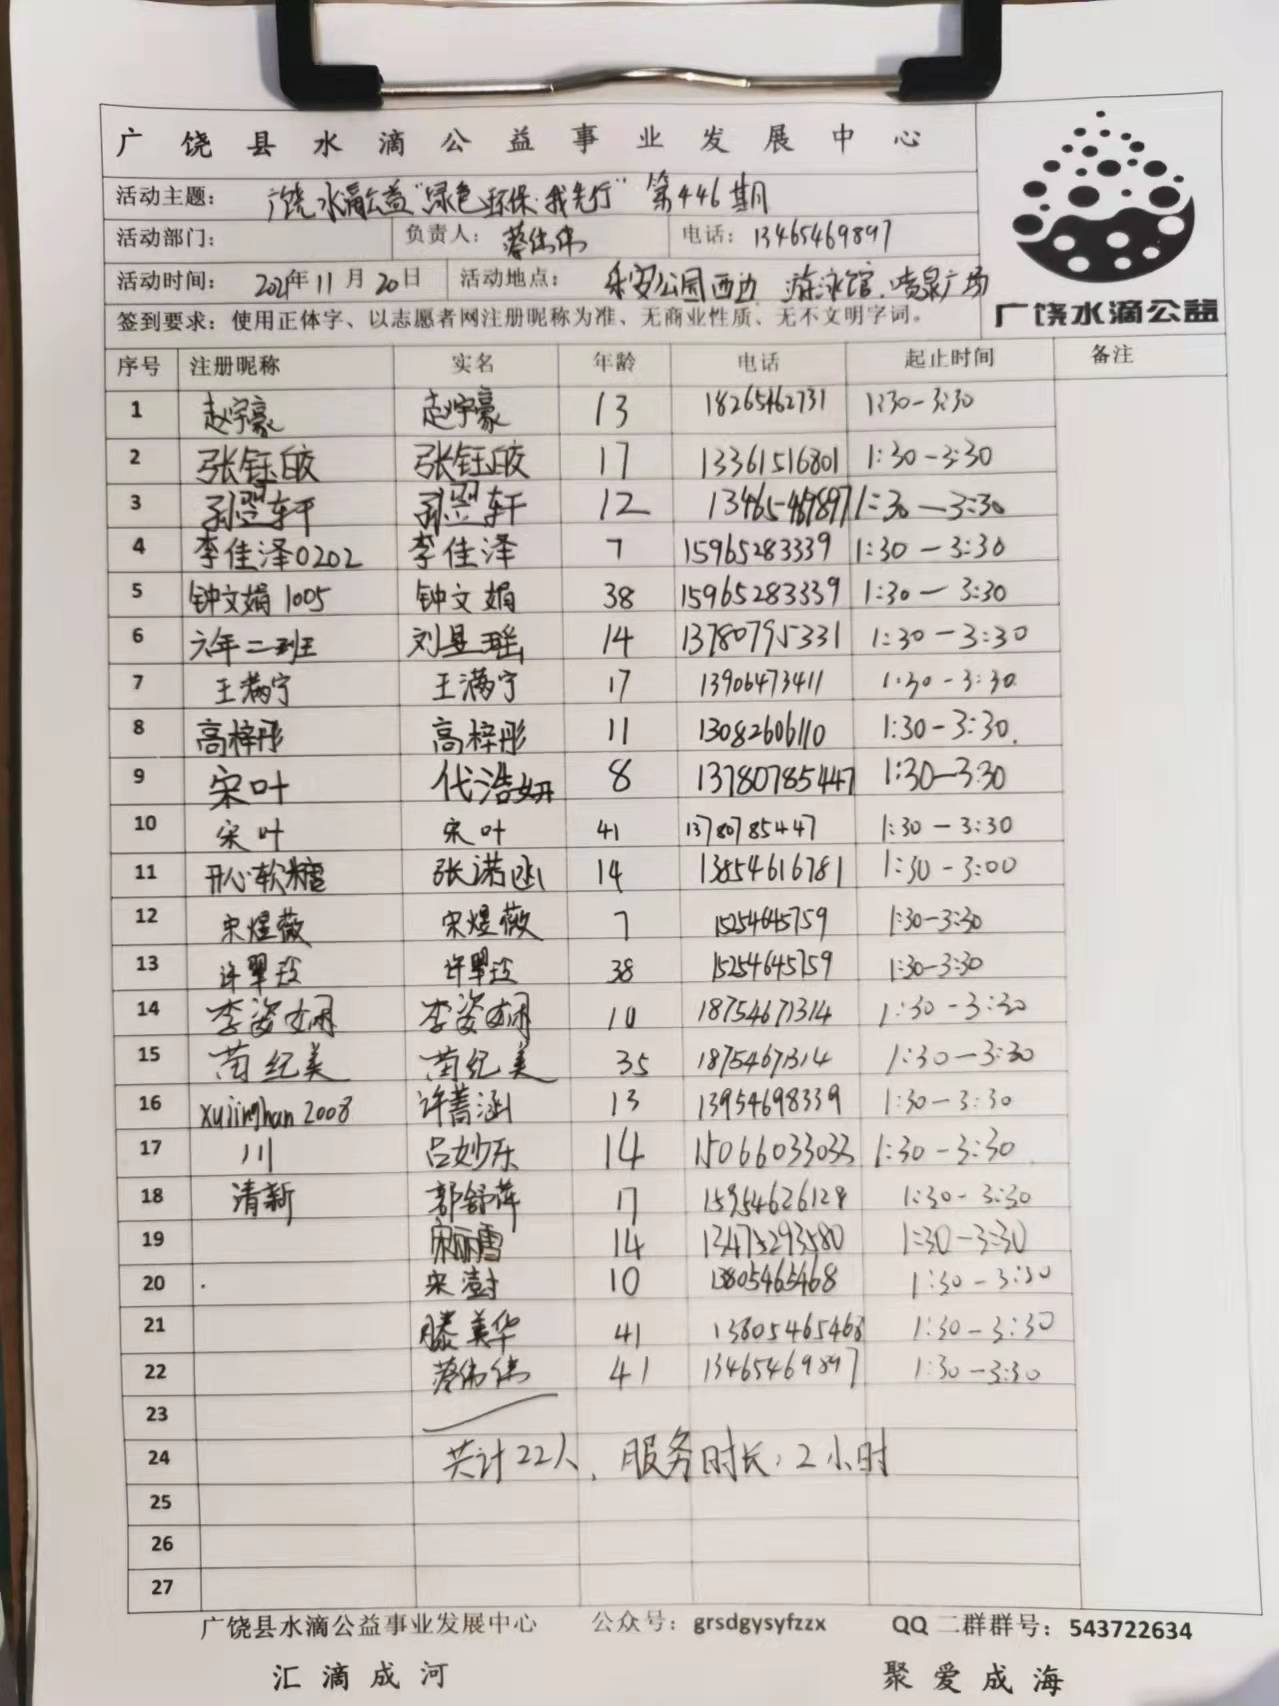 广饶县水滴公益事业发展中心
活动主题： 广饶水滴公益"绿色环保·我先行" 第446期
活动部门： 负责人：蔡伟伟 电话：13465469897
活动时间： 2021年11月20日 活动地点： 乐安公园西边 游泳馆、喷泉广场
签到要求：使用正体字、以志愿者网注册昵称为准、无商业性质、无不文明字词。
广饶水滴公益
序号 注册昵称 实名 年龄 电话 起止时间 备注
1 赵宇豪 赵宇豪 13 18265462731 1:30-3:30
2 张钰皎 张钰皎 17 13361516801 1:30-3:30
3 孙翌轩 孙翌轩 12 13465469897 1:30-3:30
4 李佳泽0202 李佳泽 7 15965283339 1:30-3:30
5 钟文娟1005 钟文娟 38 15965283339 1:30-3:30
6 六年二班 刘昱瑶 14 13780795331 1:30-3:30
7 王满宁 王满宁 17 13906473411 1:30-3:30
8 高梓彤 高梓彤 11 13082606110 1:30-3:30.
9 宋叶 代浩妍 8 13780785447 1:30-3:30
10 宋叶 宋叶 41 13780785447 1:30-3:30
11 开心软糖 张诺函 14 13854616781 1:30-3:00
12 宋煜薇 宋煜薇 7 15254645759 1:30-3:30
13 许翠玲 许翠玲 38 15254645759 1:30-3:30
14 李姿娴 李姿娴 10 18754671314 1:30-3:30
15 苗纪美 苗纪美 35 18754671314 1:30-3:30
16 xujinghan2008 许菁涵 13 13954698339 1:30-3:30
17 川 吕妙乐 14 15066033033 1:30-3:30
18 清新 郭舒萍 17 15954626128 1:30-3:30
19 宋丽雪 14 13473293580 1:30-3:30
20 宋澍 10 13805465468 1:30-3:30
21 滕美华 41 13805465468 1:30-3:30
22 蔡伟伟 41 13465469897 1:30-3:30
23
24 共计22人、服务时长：2小时
25
26
27
广饶县水滴公益事业发展中心 公众号：grsdgysyfzzx QQ二群群号：543722634
汇滴成河 聚爱成海